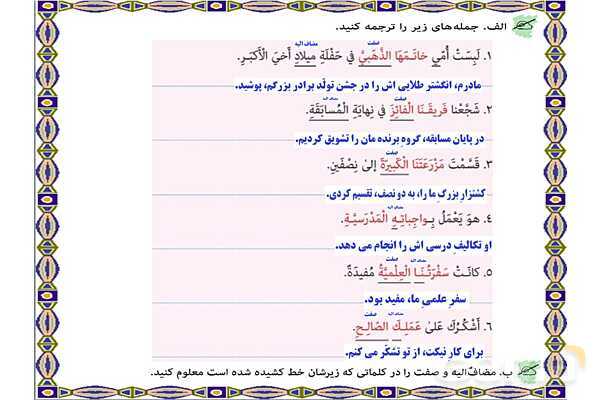 الف. جمله‌های زیر را ترجمه کنید.
صفت مضاف الیه
۱. لَبِسَتْ أُمّي خاتَمَهَا الذَّهَبيَّ في حَفْلَةِ ميلادِ أَخيَ الْأَكبَرِ.
مادرم، انگشتر طلایی اش را در جشن تولّد برادر بزرگم، پوشید.
صفت مضاف الیه
۲. شَجَّعْنا فَريقَـنَا الْفائِزَ في نِهايَةِ الْمُسابَقَةِ.
در پایان مسابقه، گروهِ برنده مان را تشویق کردیم.
صفت
۳. قَسَّمْتَ مَزْرَعَتَنَا الْكَبيرَةَ إلیٰ نِصْفَينِ.
کشتزار بزرگِ ما را، به دو نصف، تقسیم کردی.
مضاف الیه
۴. هوَ يَعْمَلُ بِـواجِباتِـهِ الْمَدْرَسيَّـةِ.
او تکالیفِ درسی اش را انجام می دهد.
مضاف الیه صفت
۵. كانَـتْ سَفْرَتُـنَـا الْعِلْميَّةُ مُفيدَةً.
سفرِ علمیِ ما، مفید بود.
مضاف الیه صفت
۶. أَشْكُرُكَ عَلیٰ عَمَلِـكَ الصّالِـحِ.
برای کارِ نیکت، از تو تشکّر می کنم.
ب. مضافٌ‌الیه و صفت را در کلماتی که زیرشان خط کشیده شده است معلوم کنید.